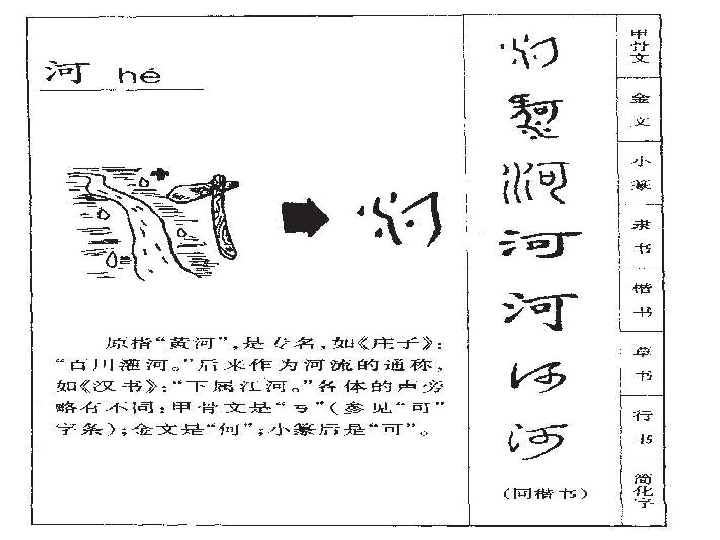 河 hé
原指“黄河”,是专名,如《庄子》:
“百川灌河。”后来作为河流的通称,
如《汉书》:“下属江河。”各体的声旁
略有不同:甲骨文是“丂”(参见“可”
字条);金文是“何”;小篆后是“可”。
河
河
河
河
(同楷书)
甲骨文
金文
小篆
隶书
楷书
草书
行书
简化字